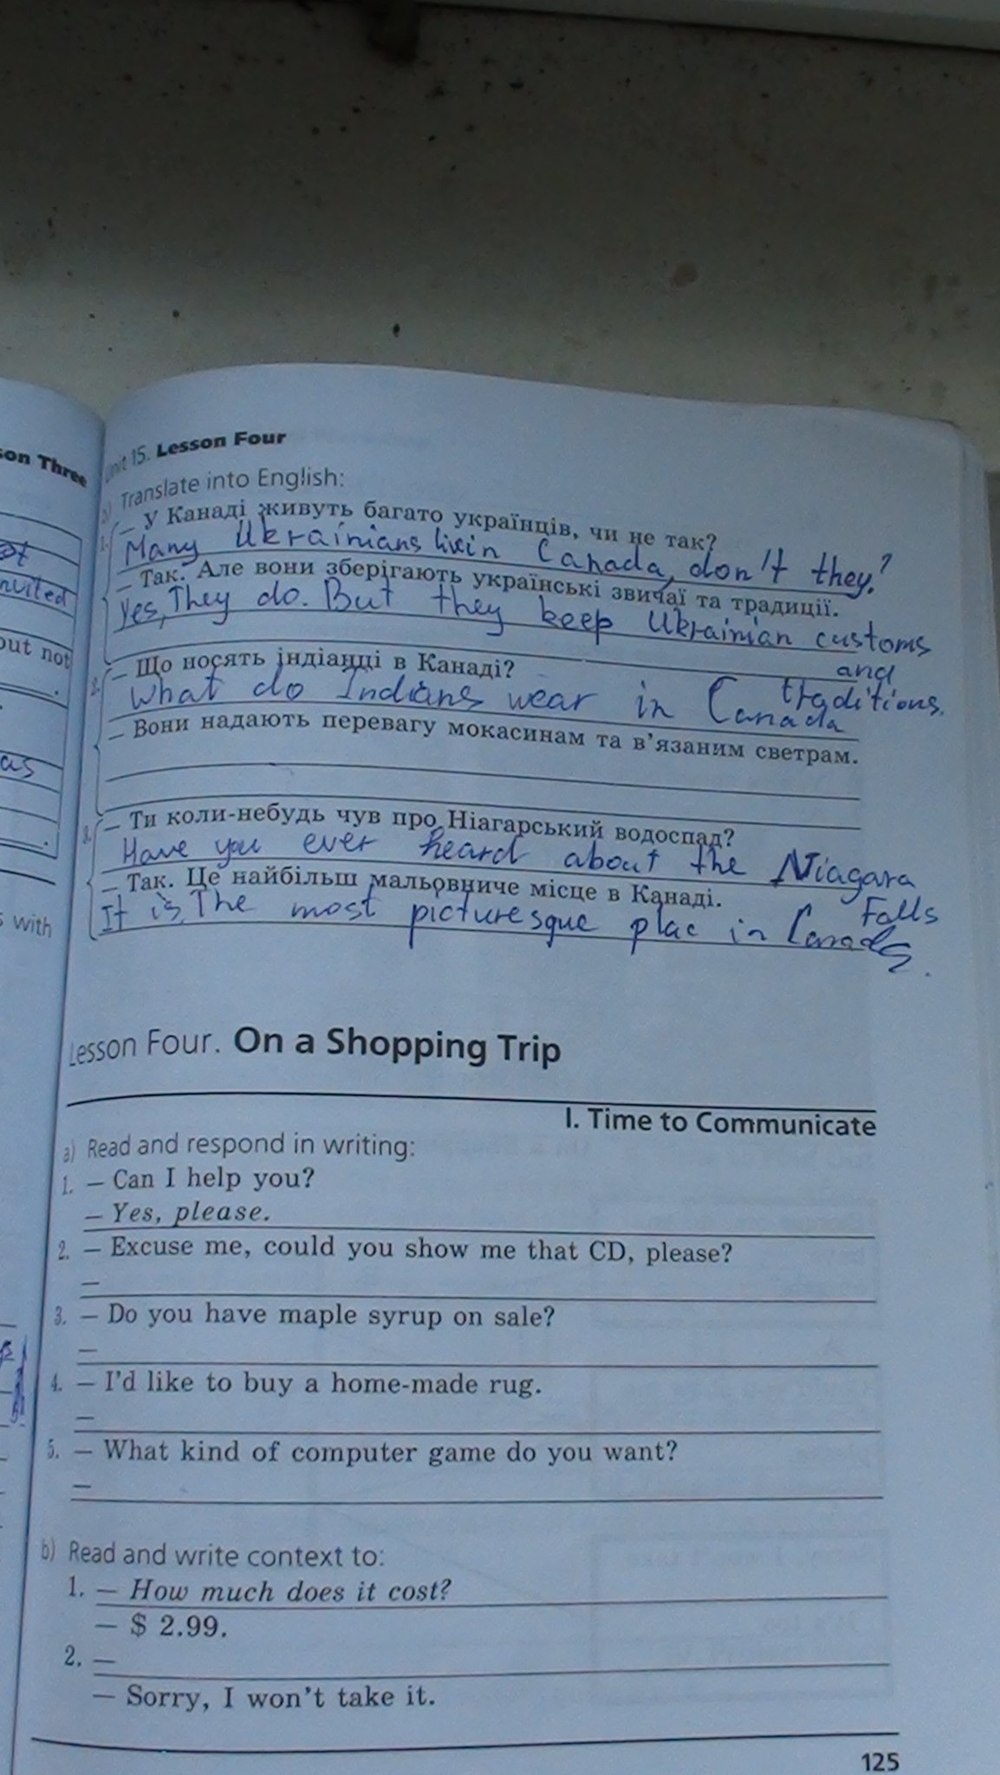 son Three
Unit 15. Lesson Four
Translate into English:
1. – У Канаді живуть багато українців, чи не так?
Many Ukrainians liv in Canada, don't they?
– Так. Але вони зберігають українські звичаї та традиції.
Yes, They do. But they keep Ukrainian customs
and
traditions.
2. – Що носять індіанці в Канаді?
What do Indians wear in Canada
– Вони надають перевагу мокасинам та в'язаним светрам.
3. – Ти коли-небудь чув про Ніагарський водоспад?
Have you ever heard about the Niagara
Falls
– Так. Це найбільш мальовниче місце в Канаді.
It is The most picturesque plac in Canada.
nvited
out not
as
s with
Lesson Four. On a Shopping Trip
I. Time to Communicate
a) Read and respond in writing:
1. – Can I help you?
– Yes, please.
2. – Excuse me, could you show me that CD, please?
–
3. – Do you have maple syrup on sale?
–
4. – I'd like to buy a home-made rug.
–
5. – What kind of computer game do you want?
–
b) Read and write context to:
1. – How much does it cost?
– $ 2.99.
2. –
– Sorry, I won't take it.
125